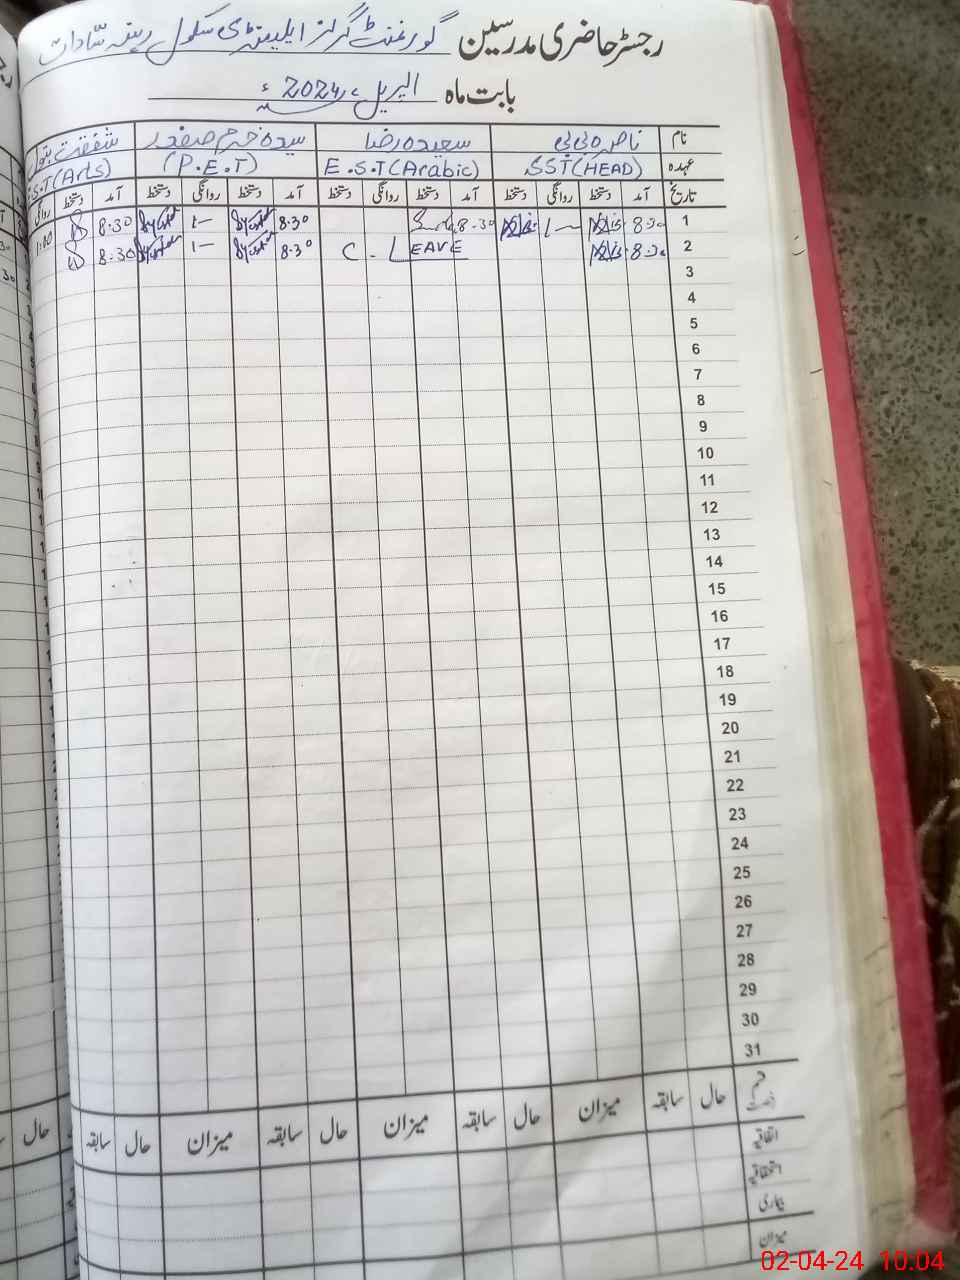 رجسٹر حاضری مدرسین گورنمنٹ گرلز ایلیمنٹری سکول رینہ سادات
بابت ماہ اپریل 2024ء
نام ناصرہ بی بی سعیدہ رضا سیدہ خرم صفدر شفقت بتول
عہدہ SST(HEAD) E.S.T(Arabic) (P.E.T) S.T(Arts)
تاریخ آمد دستخط روانگی دستخط آمد دستخط روانگی دستخط آمد دستخط روانگی دستخط آمد دستخط روانگی
1 8:30 1- 8.30 8.30 1- 8.30 1:00
2 8:30 C. LEAVE 8.30 1- 8.30
3
4
5
6
7
8
9
10
11
12
13
14
15
16
17
18
19
20
21
22
23
24
25
26
27
28
29
30
31
حال سابقہ میزان حال سابقہ میزان حال سابقہ میزان حال سابقہ حال
اتفاقیہ
استحقاقیہ
بیماری
میزان
02-04-24 10:04